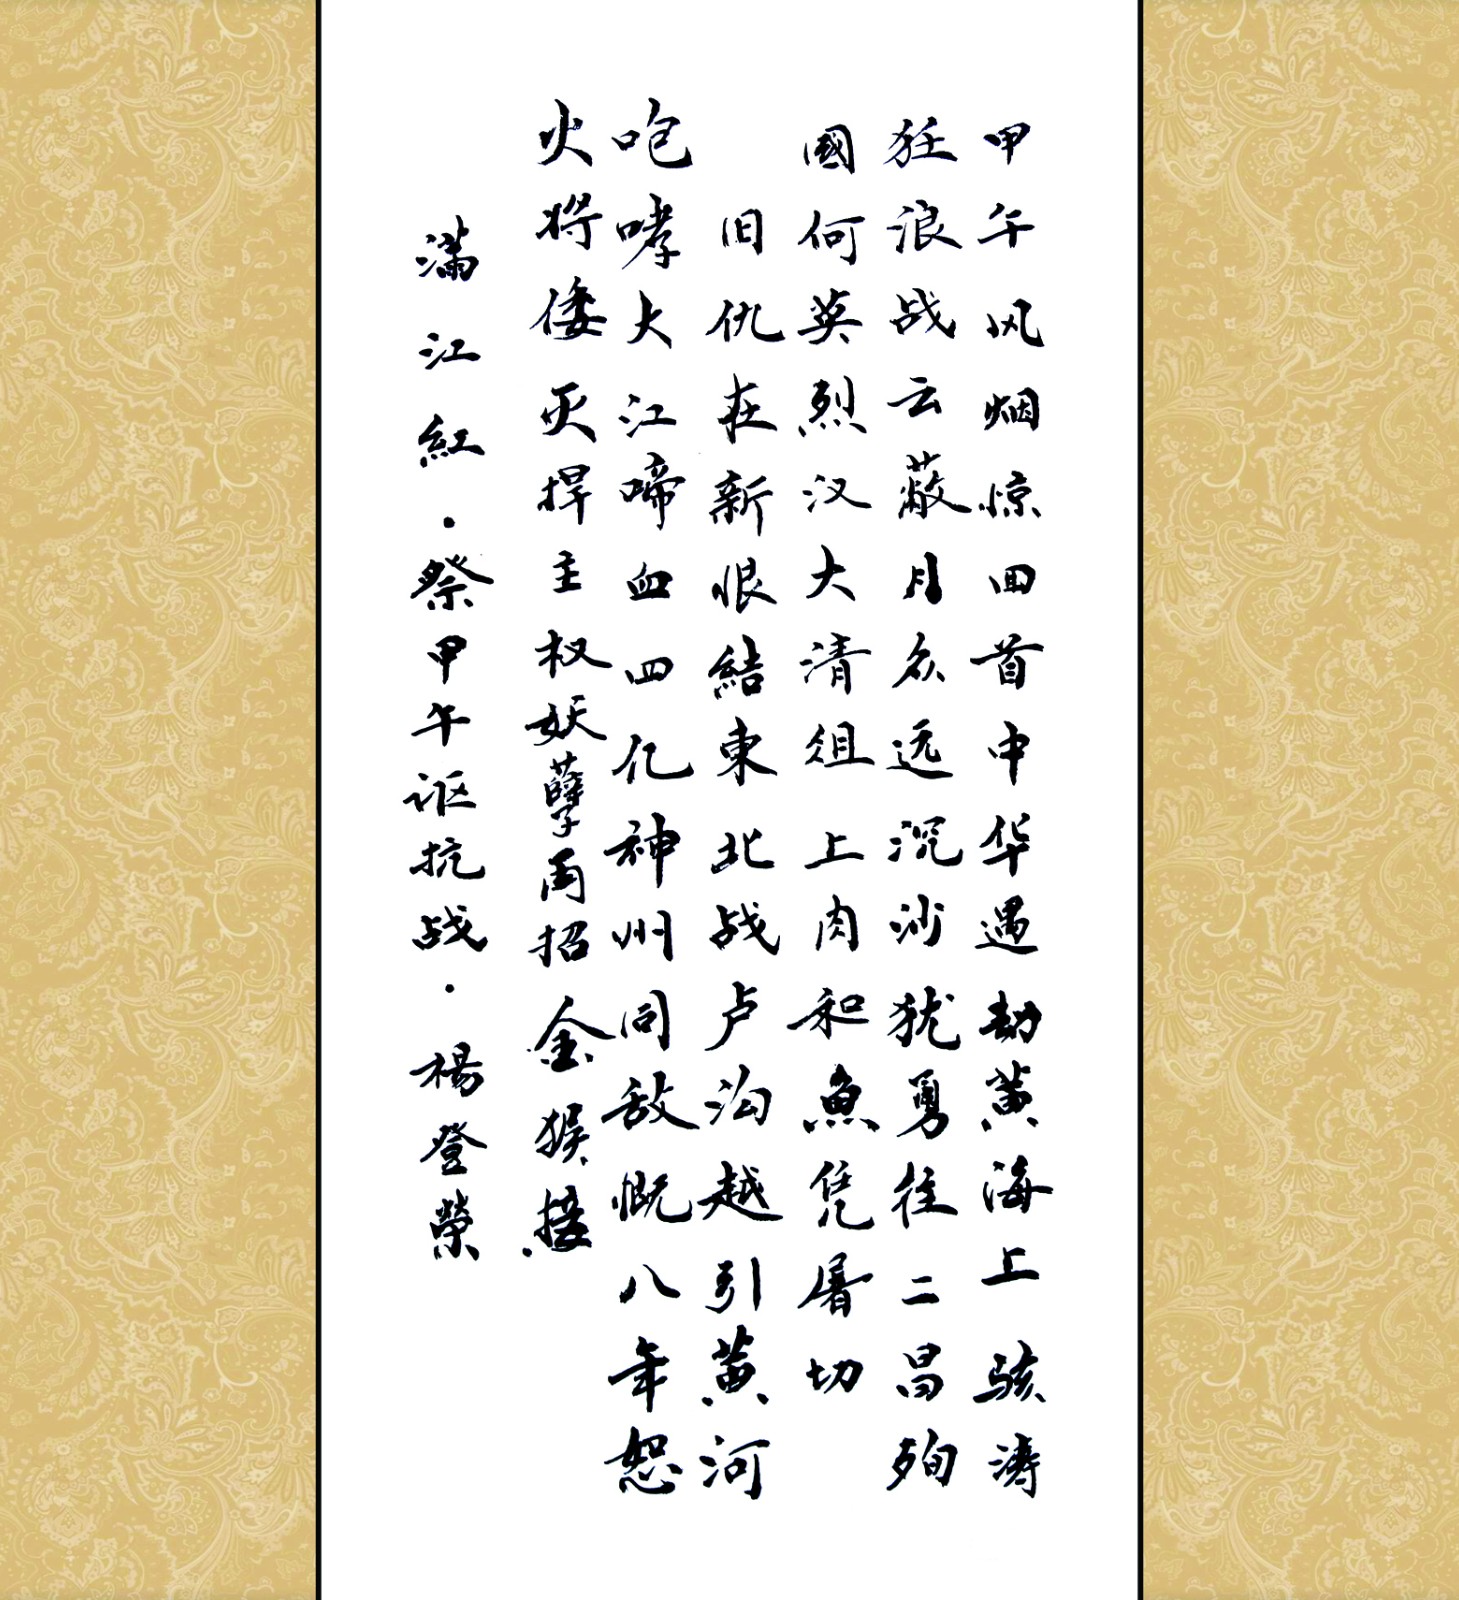 甲午风烟惊回首中华遇劫黄海上骇涛
狂浪战云蔽月众远沉沙犹勇往二昌殉
國何英烈汉大清俎上肉和魚凭屠切
旧仇在新恨結東北战卢沟越引黄河
咆哮大江啼血四亿神州同敌慨八年怒
火将倭灭捍主权妖孽再招金猴接
满江紅·祭甲午讴抗战·楊登榮